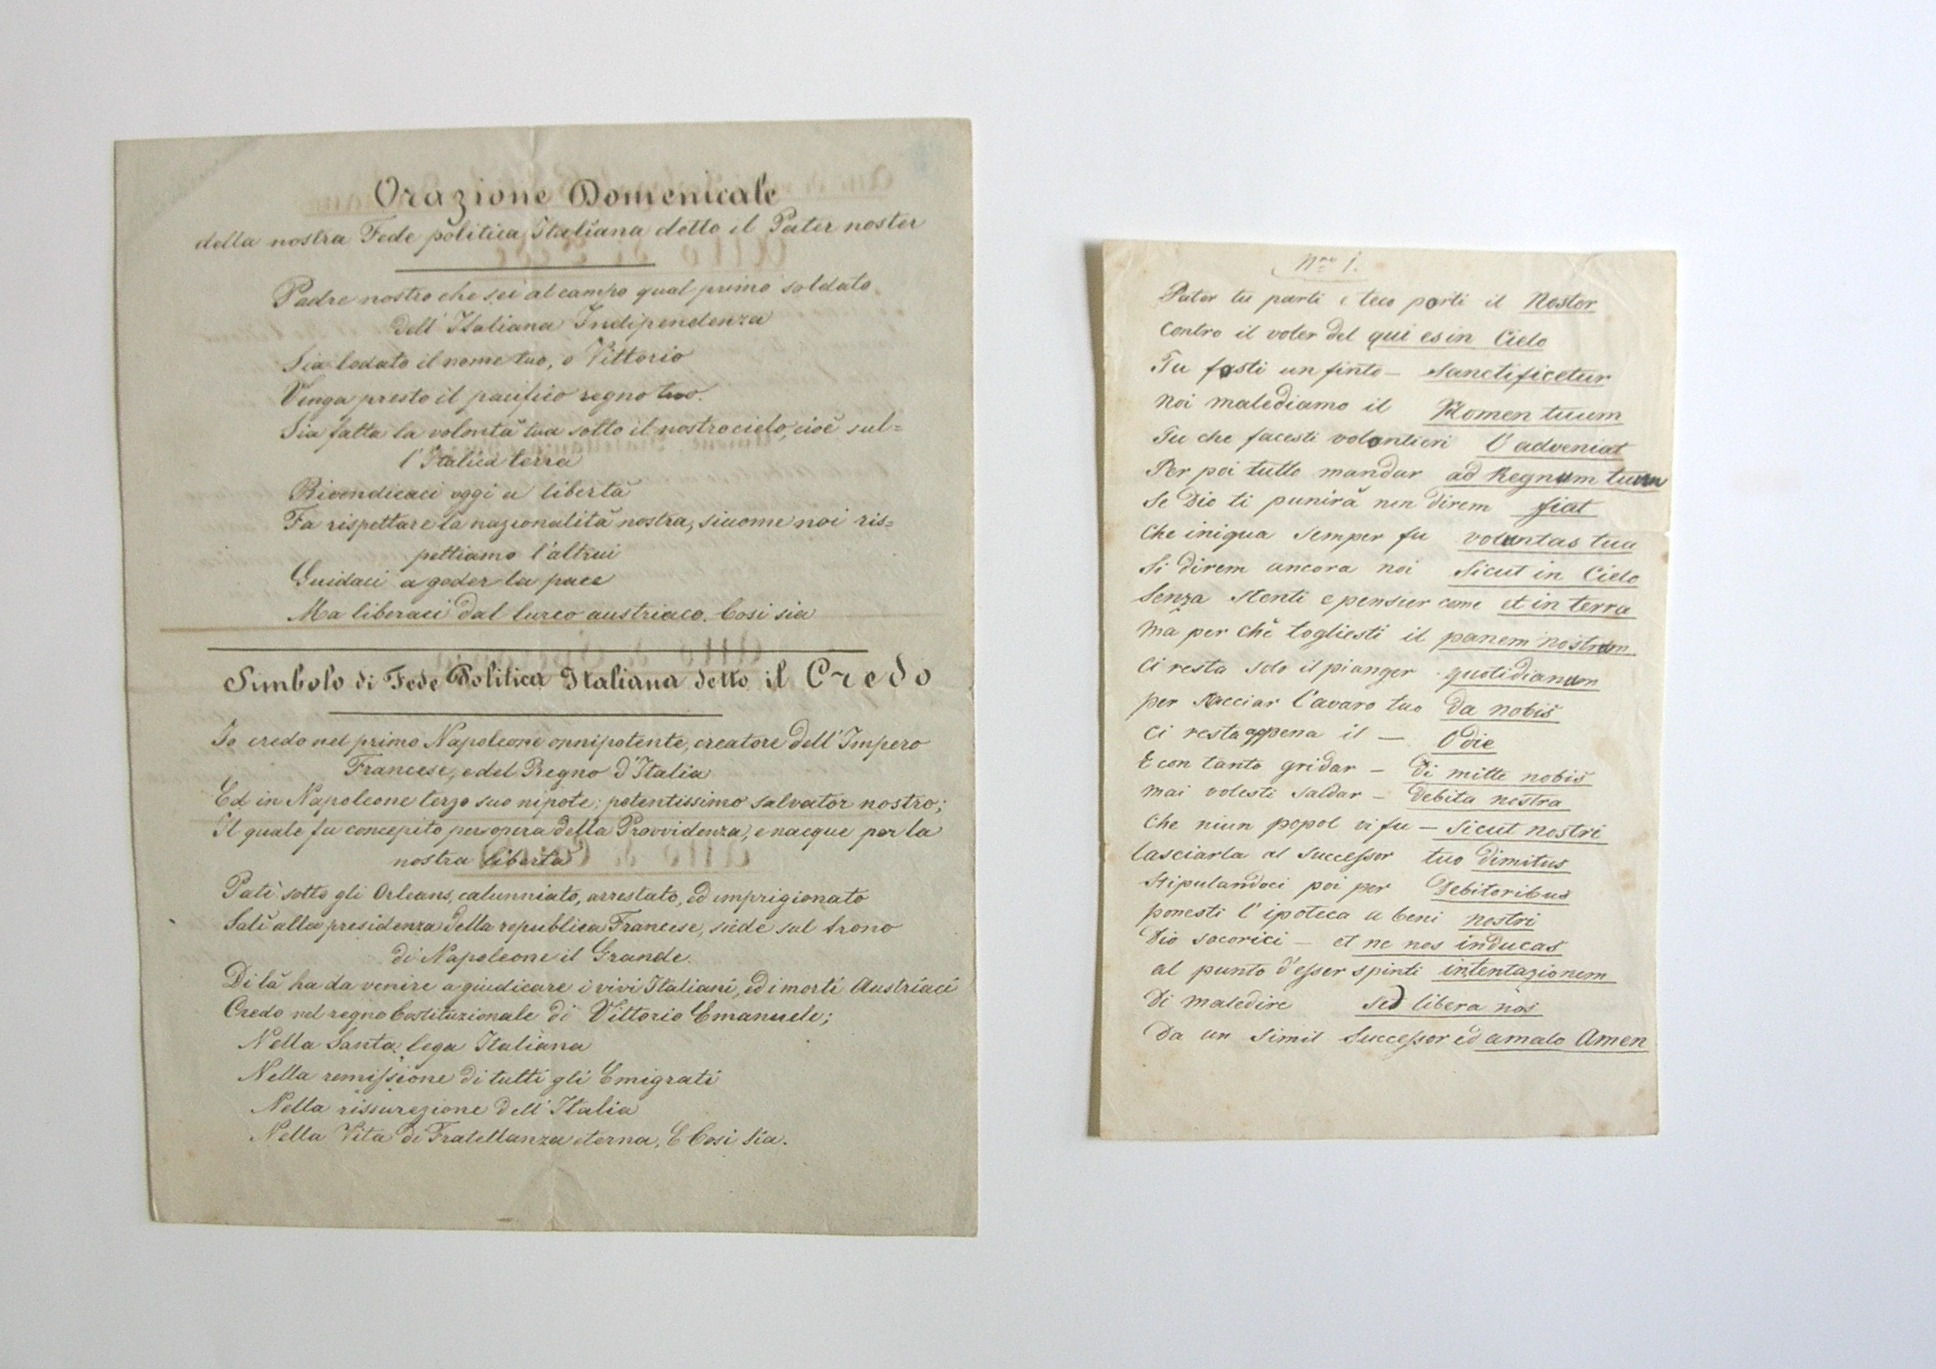 Orazione Domenicale
della nostra Fede politica Italiana detto il Pater noster
Padre nostro che sei al campo qual primo soldato
dell'Italiana Indipendenza
Sia lodato il nome tuo, o Vittorio
Venga presto il pacifico regno tuo.
Sia fatta la volontà tua sotto il nostro cielo, cioè sul=
l'Italica terra
Rivendicaci oggi a libertà
Fa rispettare la nazionalità nostra, siccome noi ris=
pettiamo l'altrui
Guidaci a goder la pace
Ma liberaci dal lurco austriaco. Così sia
Simbolo di Fede Politica Italiana detto il Credo
Io credo nel primo Napoleone onnipotente, creatore dell'Impero
Francese, e del Regno d'Italia
Ed in Napoleone terzo suo nipote; potentissimo salvator nostro;
Il quale fu concepito per opera della Provvidenza, e nacque per la
nostra libertà
Patì sotto gli Orleans, calunniato, arrestato, ed imprigionato
Salì alla presidenza della republica Francese, siede sul trono
di Napoleone il Grande.
Di là ha da venire a giudicare i vivi Italiani, ed i morti Austriaci
Credo nel regno Costituzionale di Vittorio Emanuele;
Nella Santa lega Italiana
Nella remissione di tutti gli Emigrati
Nella rissurezione dell'Italia
Nella Vita di Fratellanza eterna, E Così Sia.
Nro 1.
Pater tu parti e teco porti il Noster
Contro il voler del qui es in Cielo
Tu fosti un finto – Sanctificetur
Noi malediamo il Nomen tuum
Tu che facesti volontieri l'adveniat
Per poi tutto mandar ad Regnum tuum
Se Dio ti punirà non direm fiat
Che iniqua semper fu voluntas tua
Si direm ancora noi Sicut in Cielo
Senza stenti e pensier come et in terra
Ma per chè togliesti il panem nostrum
Ci resta solo il pianger quotidianum
per sacciar l'avaro tuo da nobis
Ci resta appena il – Odie
E con tanto gridar – Di mitte nobis
Mai volesti saldar – Debita nostra
Che niun popol vi fu – Sicut nostri
lasciarla al Successor tuo dimitus
Stipulandoci poi per Debitoribus
ponesti l'ipoteca a beni nostri
Dio socorici – et ne nos inducas
al punto d'esser spinti intentazionem
Di maledire Sed libera nos
Da un simil Successor ed amalo Amen